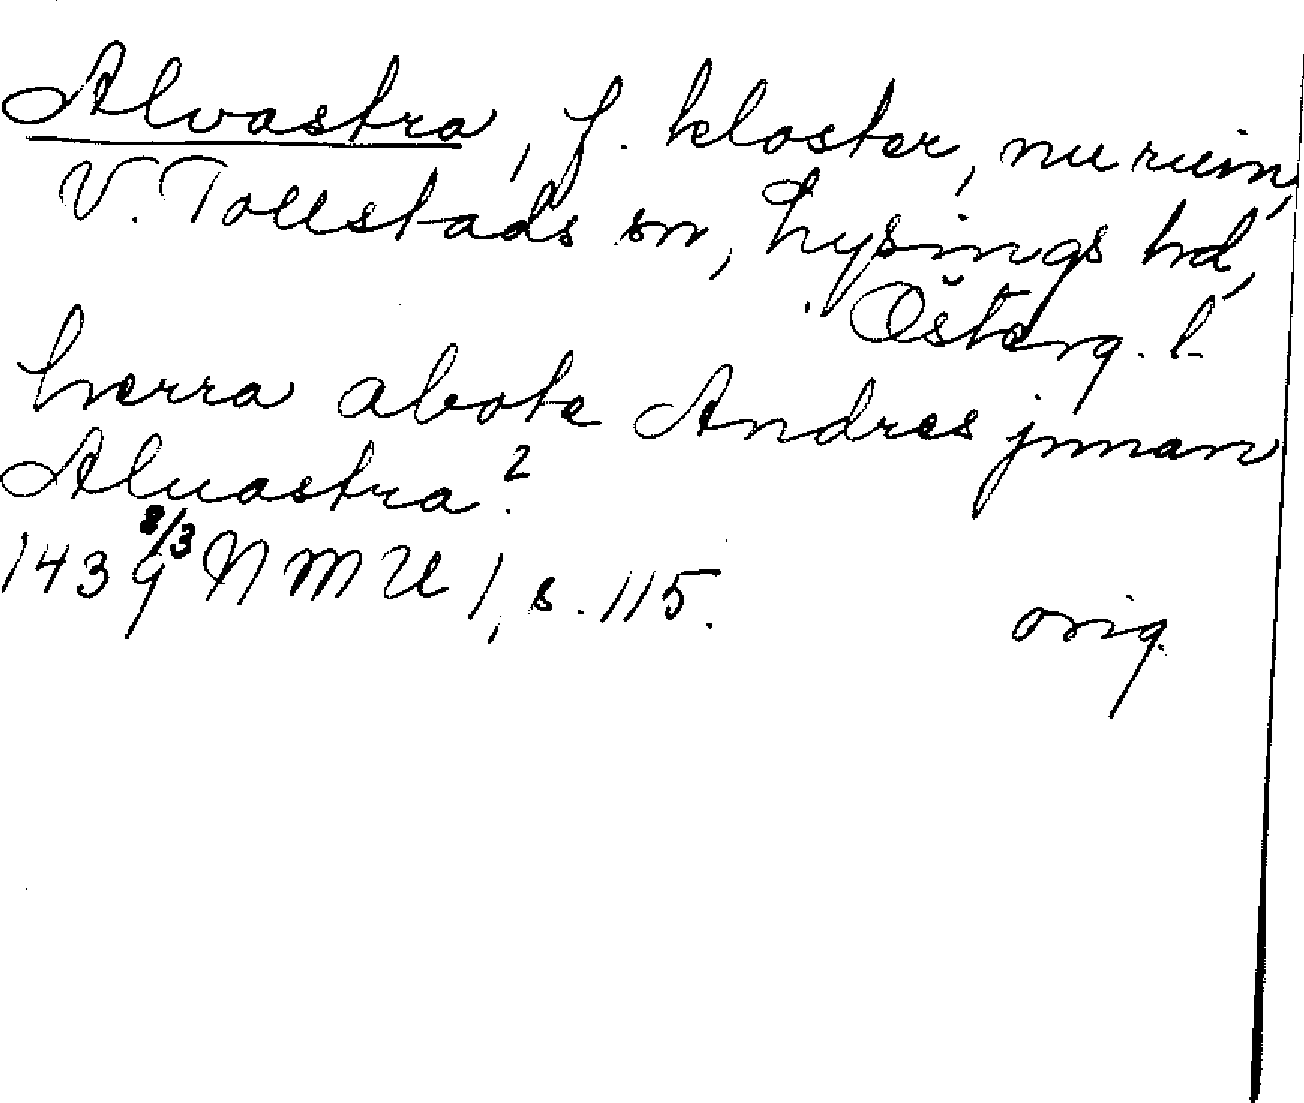 Alvastra, f. kloster, nu ruin,
V. Tollstads sn, Lysings hd,
Österg. l.
herra abote Andres jnnan
Aluastra.²
1439 8/3 NMU 1, s. 115. orig.